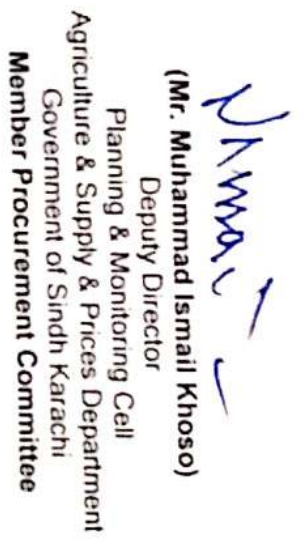 (Mr. Muhammad Ismail Khoso)
Deputy Director
Planning & Monitoring Cell
Agriculture & Supply & Prices Department
Government of Sindh Karachi
Member Procurement Committee